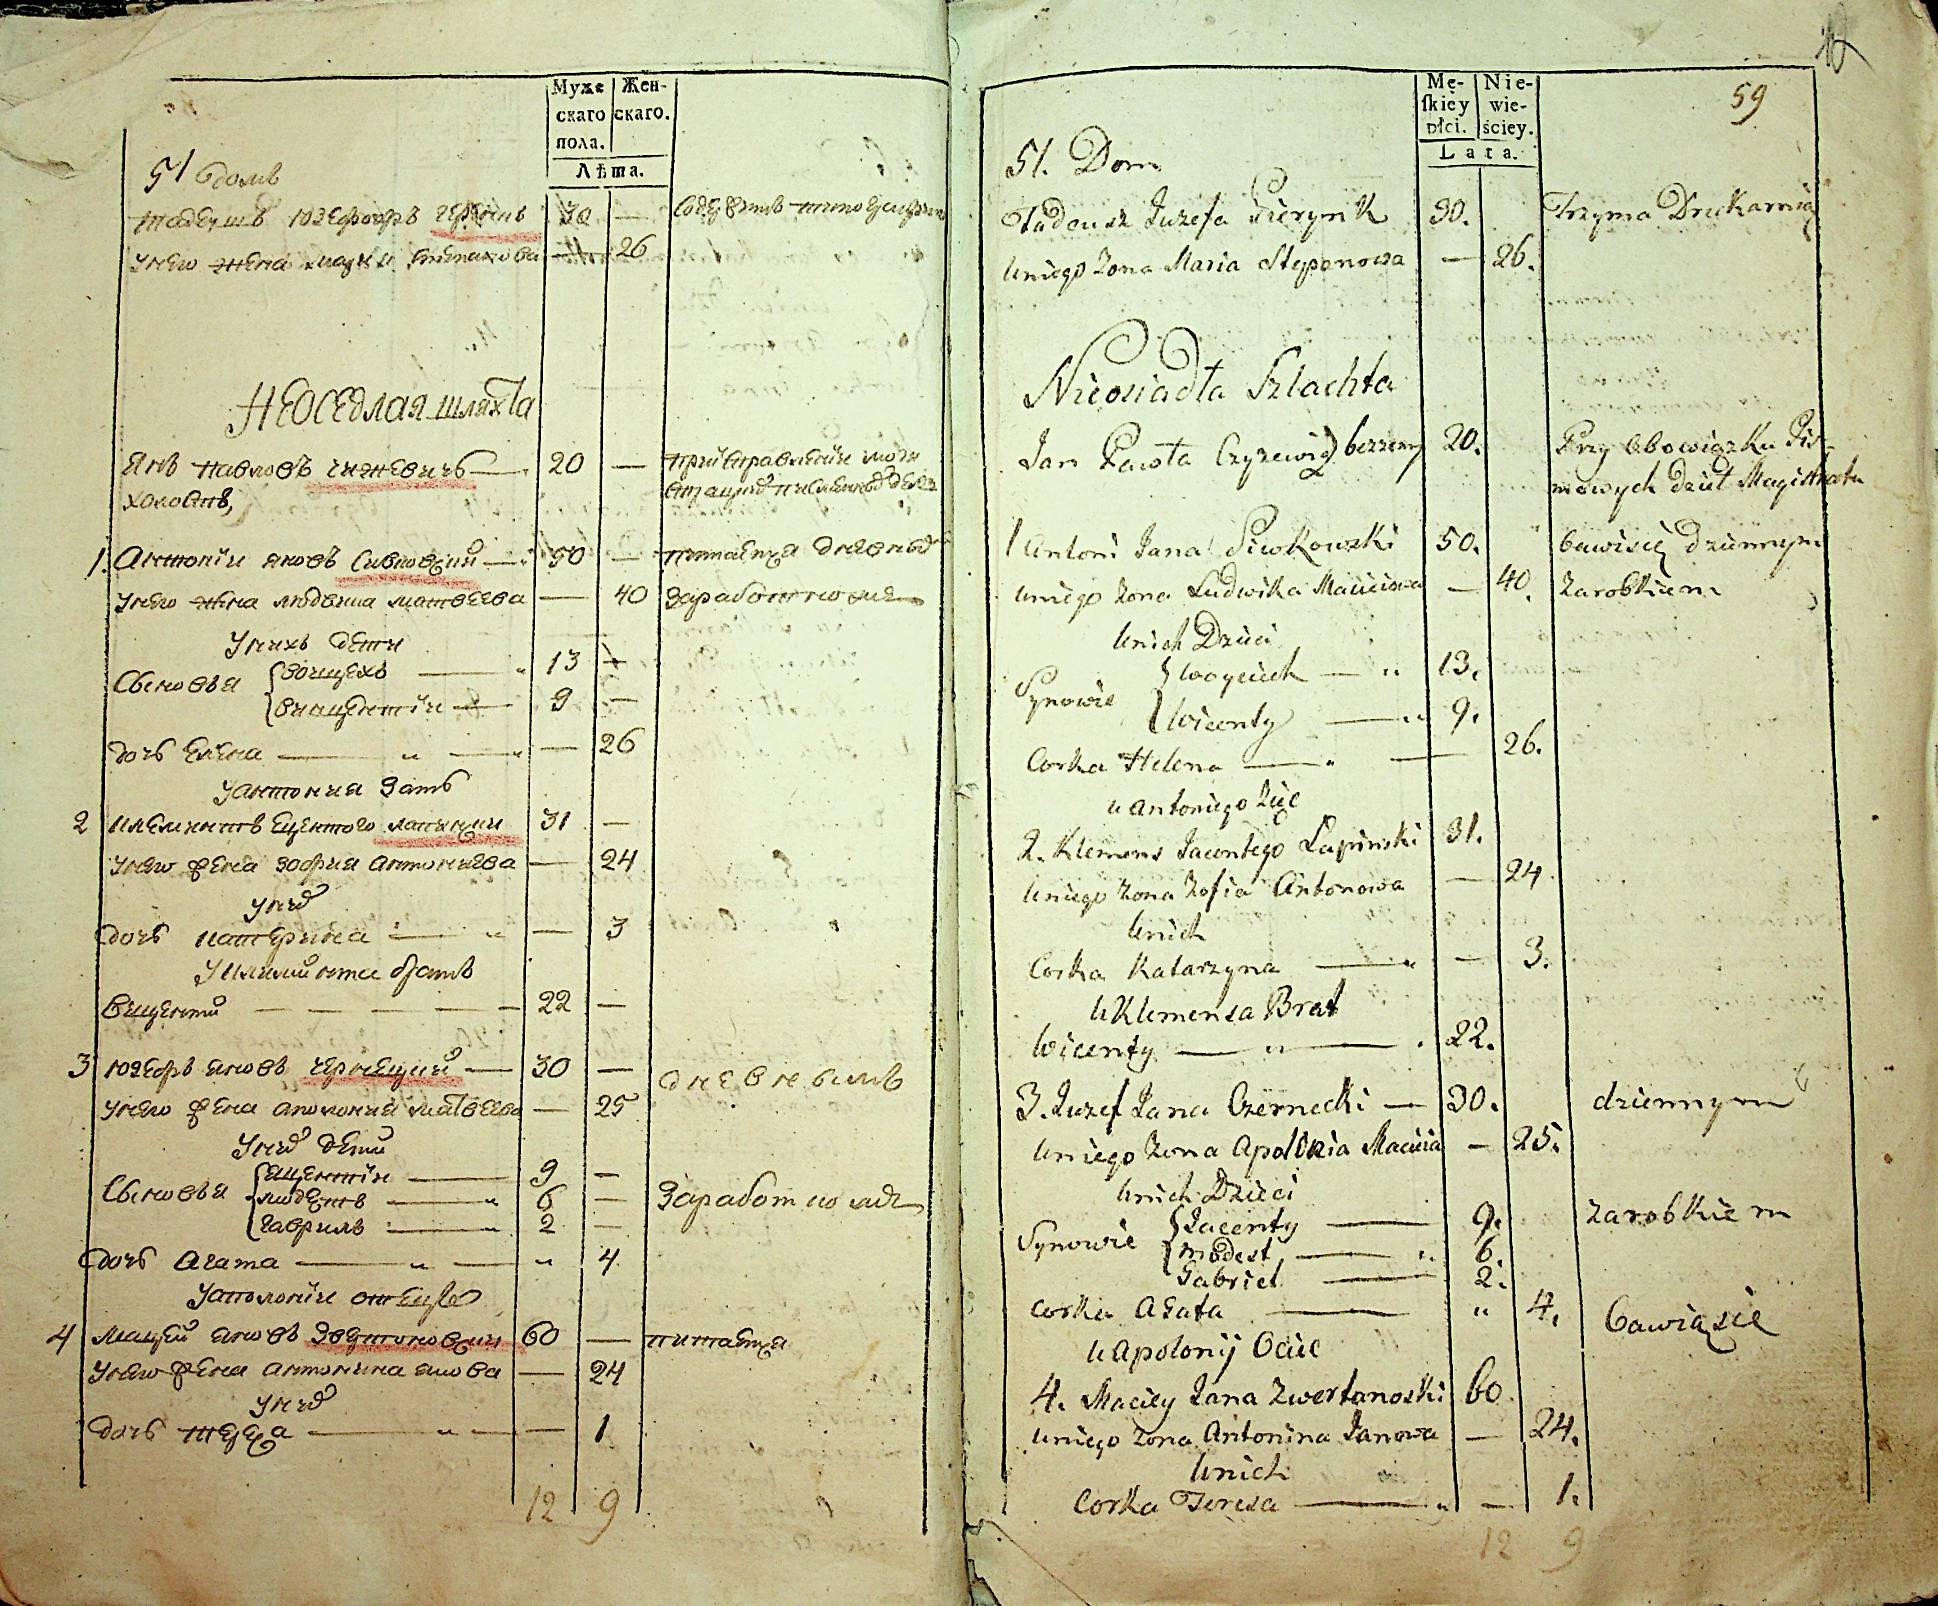 Муже
скаго
пола.
Жен-
скаго.
Лѣта.
51 домъ
Тадеушъ Юзефовъ 30 —
У него жена Степанова — 26
Неоседлая шляхта
Янъ Павловъ Чижевичъ — 20 —
холостъ,
1. Антоній Яновъ Сивковскій — 50 — питается дневной
У него жена Людвика Матвеева — 40 заработкомъ
У нихъ дети
Сыновья Войцехъ — 13 —
Винцентій — 9 —
дочь Елена — — 26
У Антонія зять
2 Климентъ Лапинскій 31 —
У него жена Зофия Антониева — 24
У нихъ
дочь Катерына — — 3
У Климента братъ
Вицентій — 22 —
3 Юзефъ Яновъ Чернецкій — 30 — дневнымъ
У него жена Аполония Матвеева — 25
У нихъ дети
Сыновья Яцентій — 9 —
Модестъ — 6 —
Гаврилъ — 2 — заработкомъ
дочь Агата — „ 4
У Аполоніи отецъ
4 Мацей Яновъ 60 — питается
У него жена Антонина Янова — 24
У нихъ
дочь Тереса — — 1
12 9
59
Mę-
ſkiey
płci.
Nie-
wie-
ściey.
Lata.
51. Dom
Tadeusz Juzefa Pierynk 30. Trzyma Drukarnią
U niego Zona Maria Stepanowa — 26.
Nieosiadła Szlachta
Jan Pawła Czyzewicz bezzeny 20. Przy Obowiązku Pis-
mowych dzieł Magistratu
1 Antoni Jana Siwkowski 50. bawi się dziennym
U niego Zona Ludwika Macieiowa — 40. Zarobkiem
U nich Dzieci
Synowie Woyciech — „ 13.
Wicenty — „ 9.
Corka Helena — „ — 26.
U Antoniego Zięć
2. Klemens Jacentego Lapinski 31.
U niego Zona Zofia Antonowa — 24
U nich
Corka Katarzyna — „ — 3.
U Klemensa Brat
Wicenty — „ — 22.
3. Juzef Jana Czernecki — 30. dziennym
U niego Zona Apolonia Macieia — 25.
U nich Dzieci
Synowie Jacenty — 9. zarobkiem
Modest — „ 6.
Gabriel — 2.
Corka Agata — „ 4.
U Apolonij Ociec bawią sie
4. Maciey Jana Zwertanoski 60
U niego Zona Antonina Janowa — 24.
U nich
Corka Teresa — „ — 1.
12 9